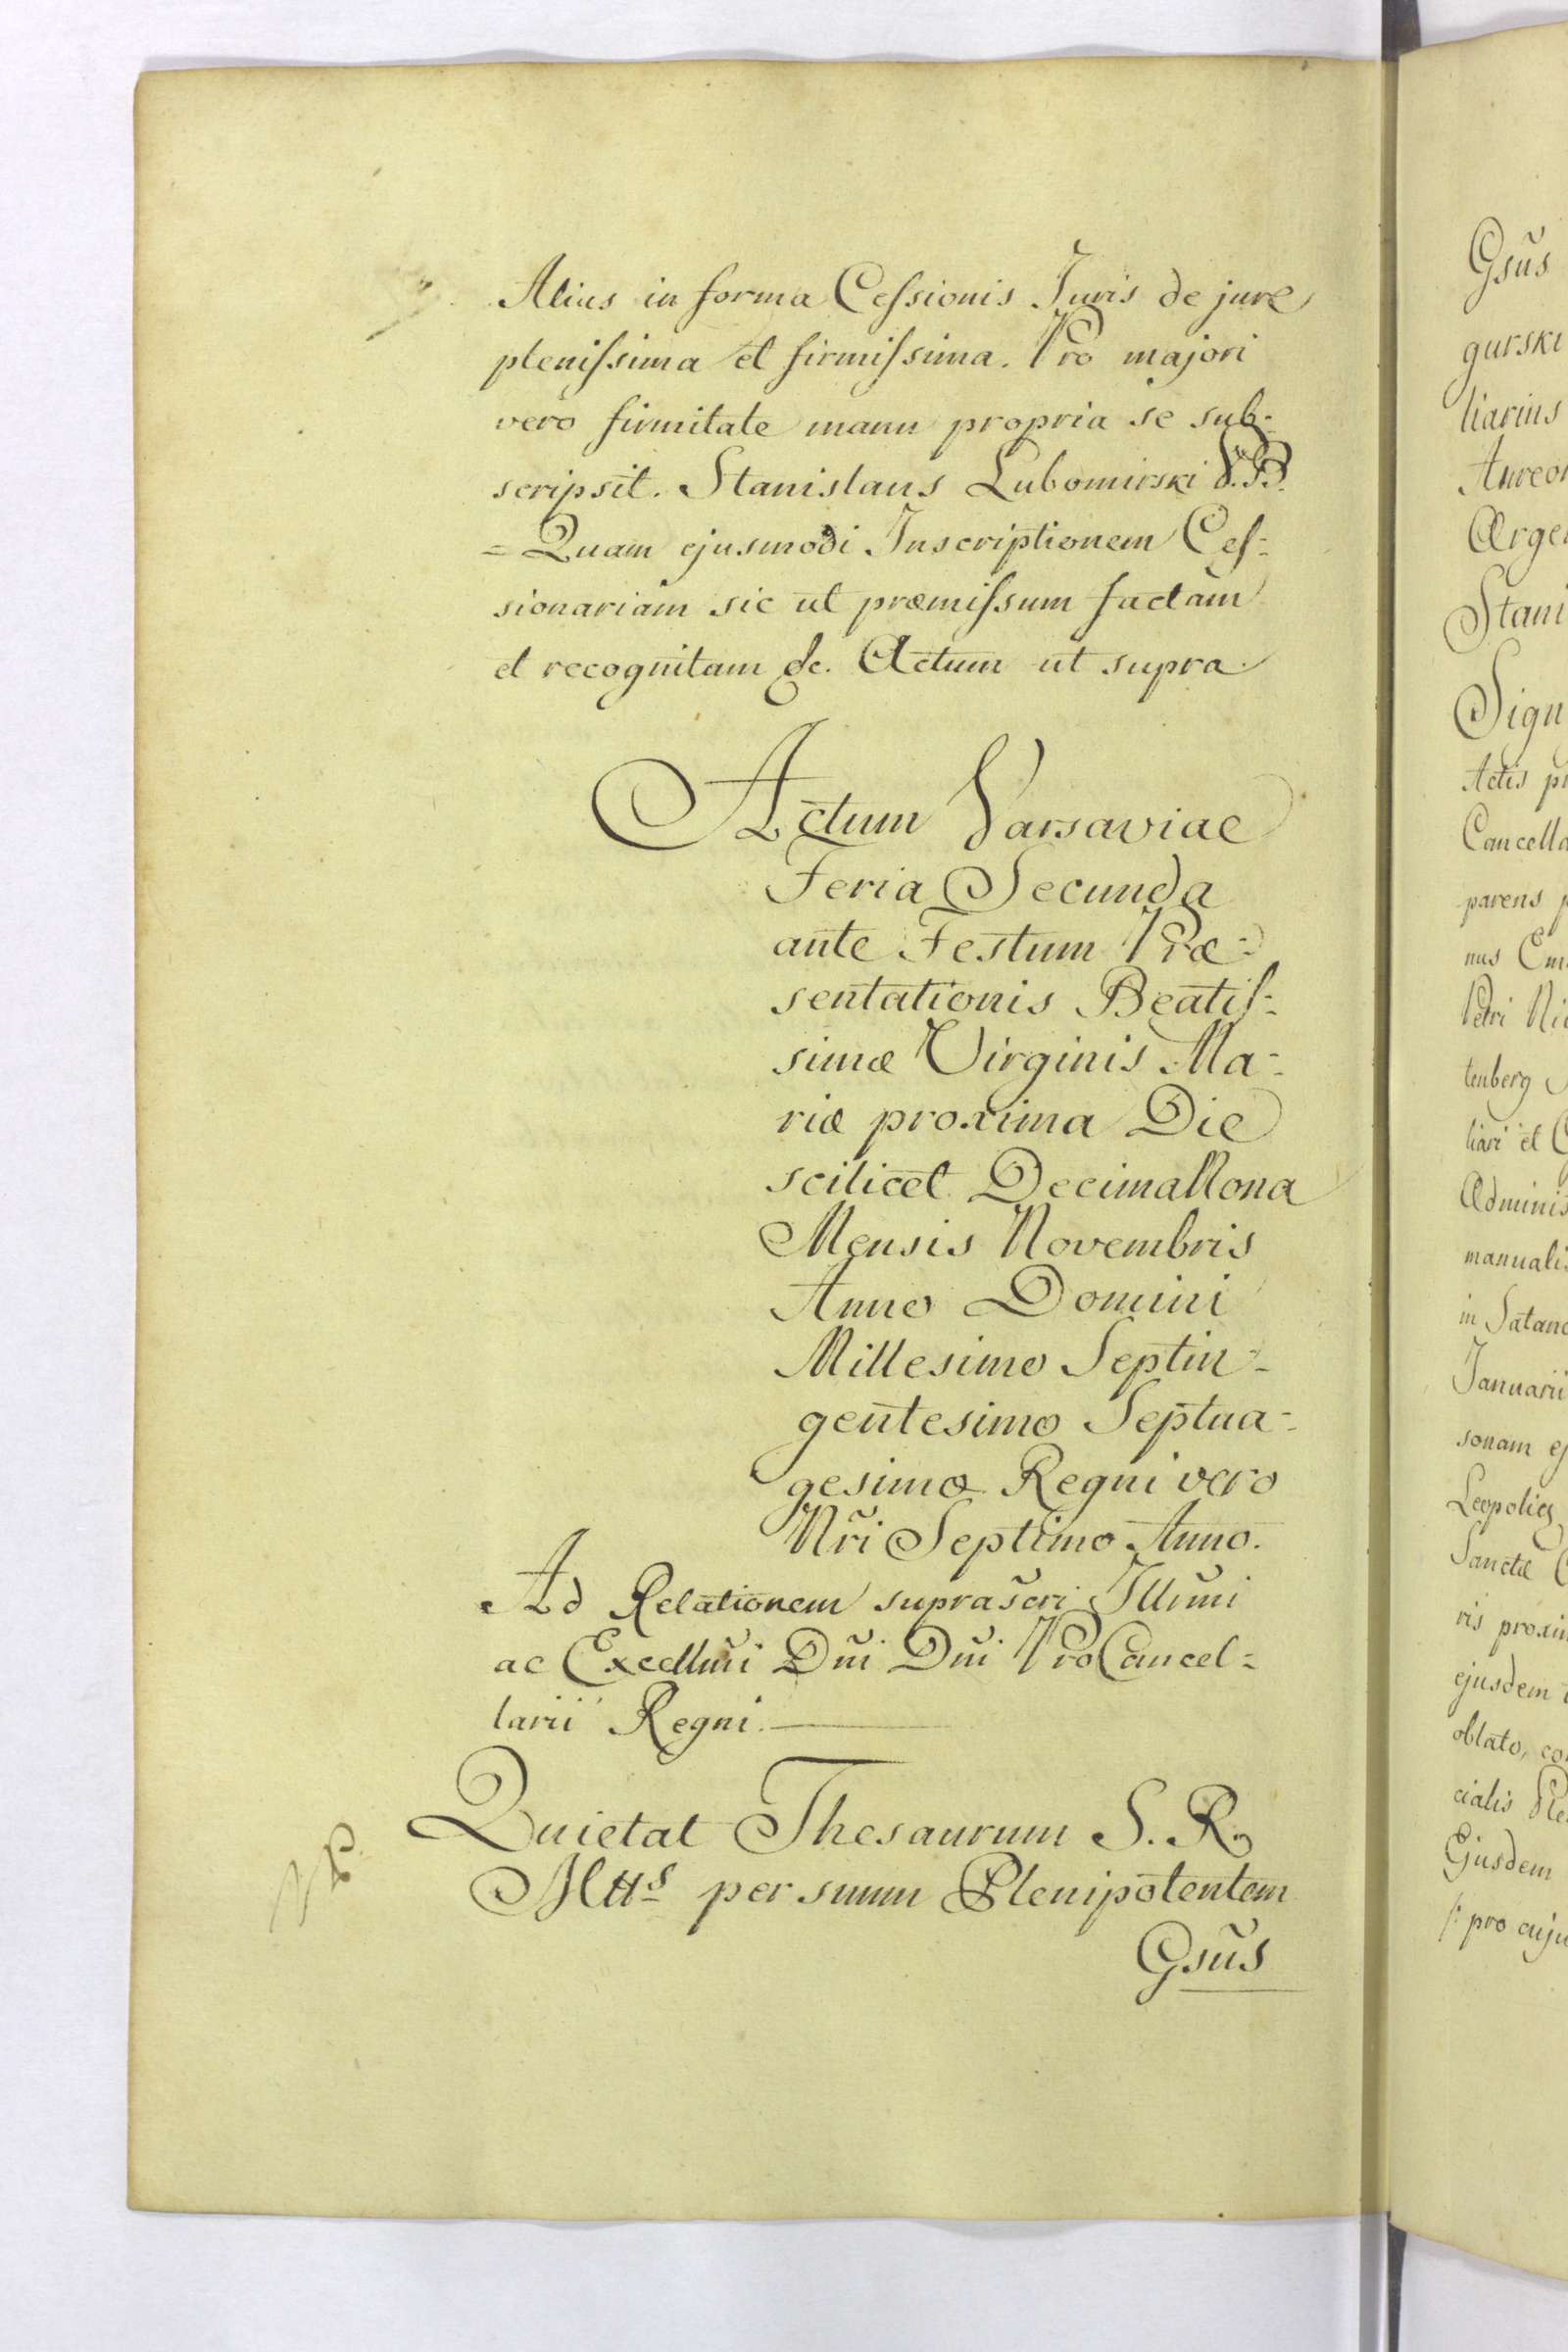 Alius in forma Ceſsionis Juris de jure
pleniſsima et firmiſsima. Pro majori
vero firmitate manu propria se sub=
scripsit. Stanislaus Lubomirski
= Quam ejusmodi Inscriptionem Ceſ=
sionariam sic ut præmiſsum factam
et recognitam &c. Actum ut supra.
Actum Varsaviae
Feria Secunda
ante Festum Præ=
sentationis Beatiſ=
simæ Virginis Ma=
riæ proxima Die
scilicet Decima Nona
Mensis Novembris
Anno Domini
Millesimo Septin=
gentesimo Septua=
gesimo Regni vero
Nr̃i Septimo Anno.
Ad Relationem suprascri Illm̃i
ac Excellm̃i Dñi Dñi ProCancel=
larii Regni.
Quietat Thesaurum S. R.
Mtts per suum Plenipotentem
Gsũs
Gsũs
gurski
liarius
Stani
Sign
Actis
Cancella
parens
nus
Petri
tenberg
liari et
Adminis
manualis
in Satano
Januarii
sonam
Leopolies
Sanctæ
ris proxim
ejusdem
oblato,
cialis
Ejusdem
/: pro cuju